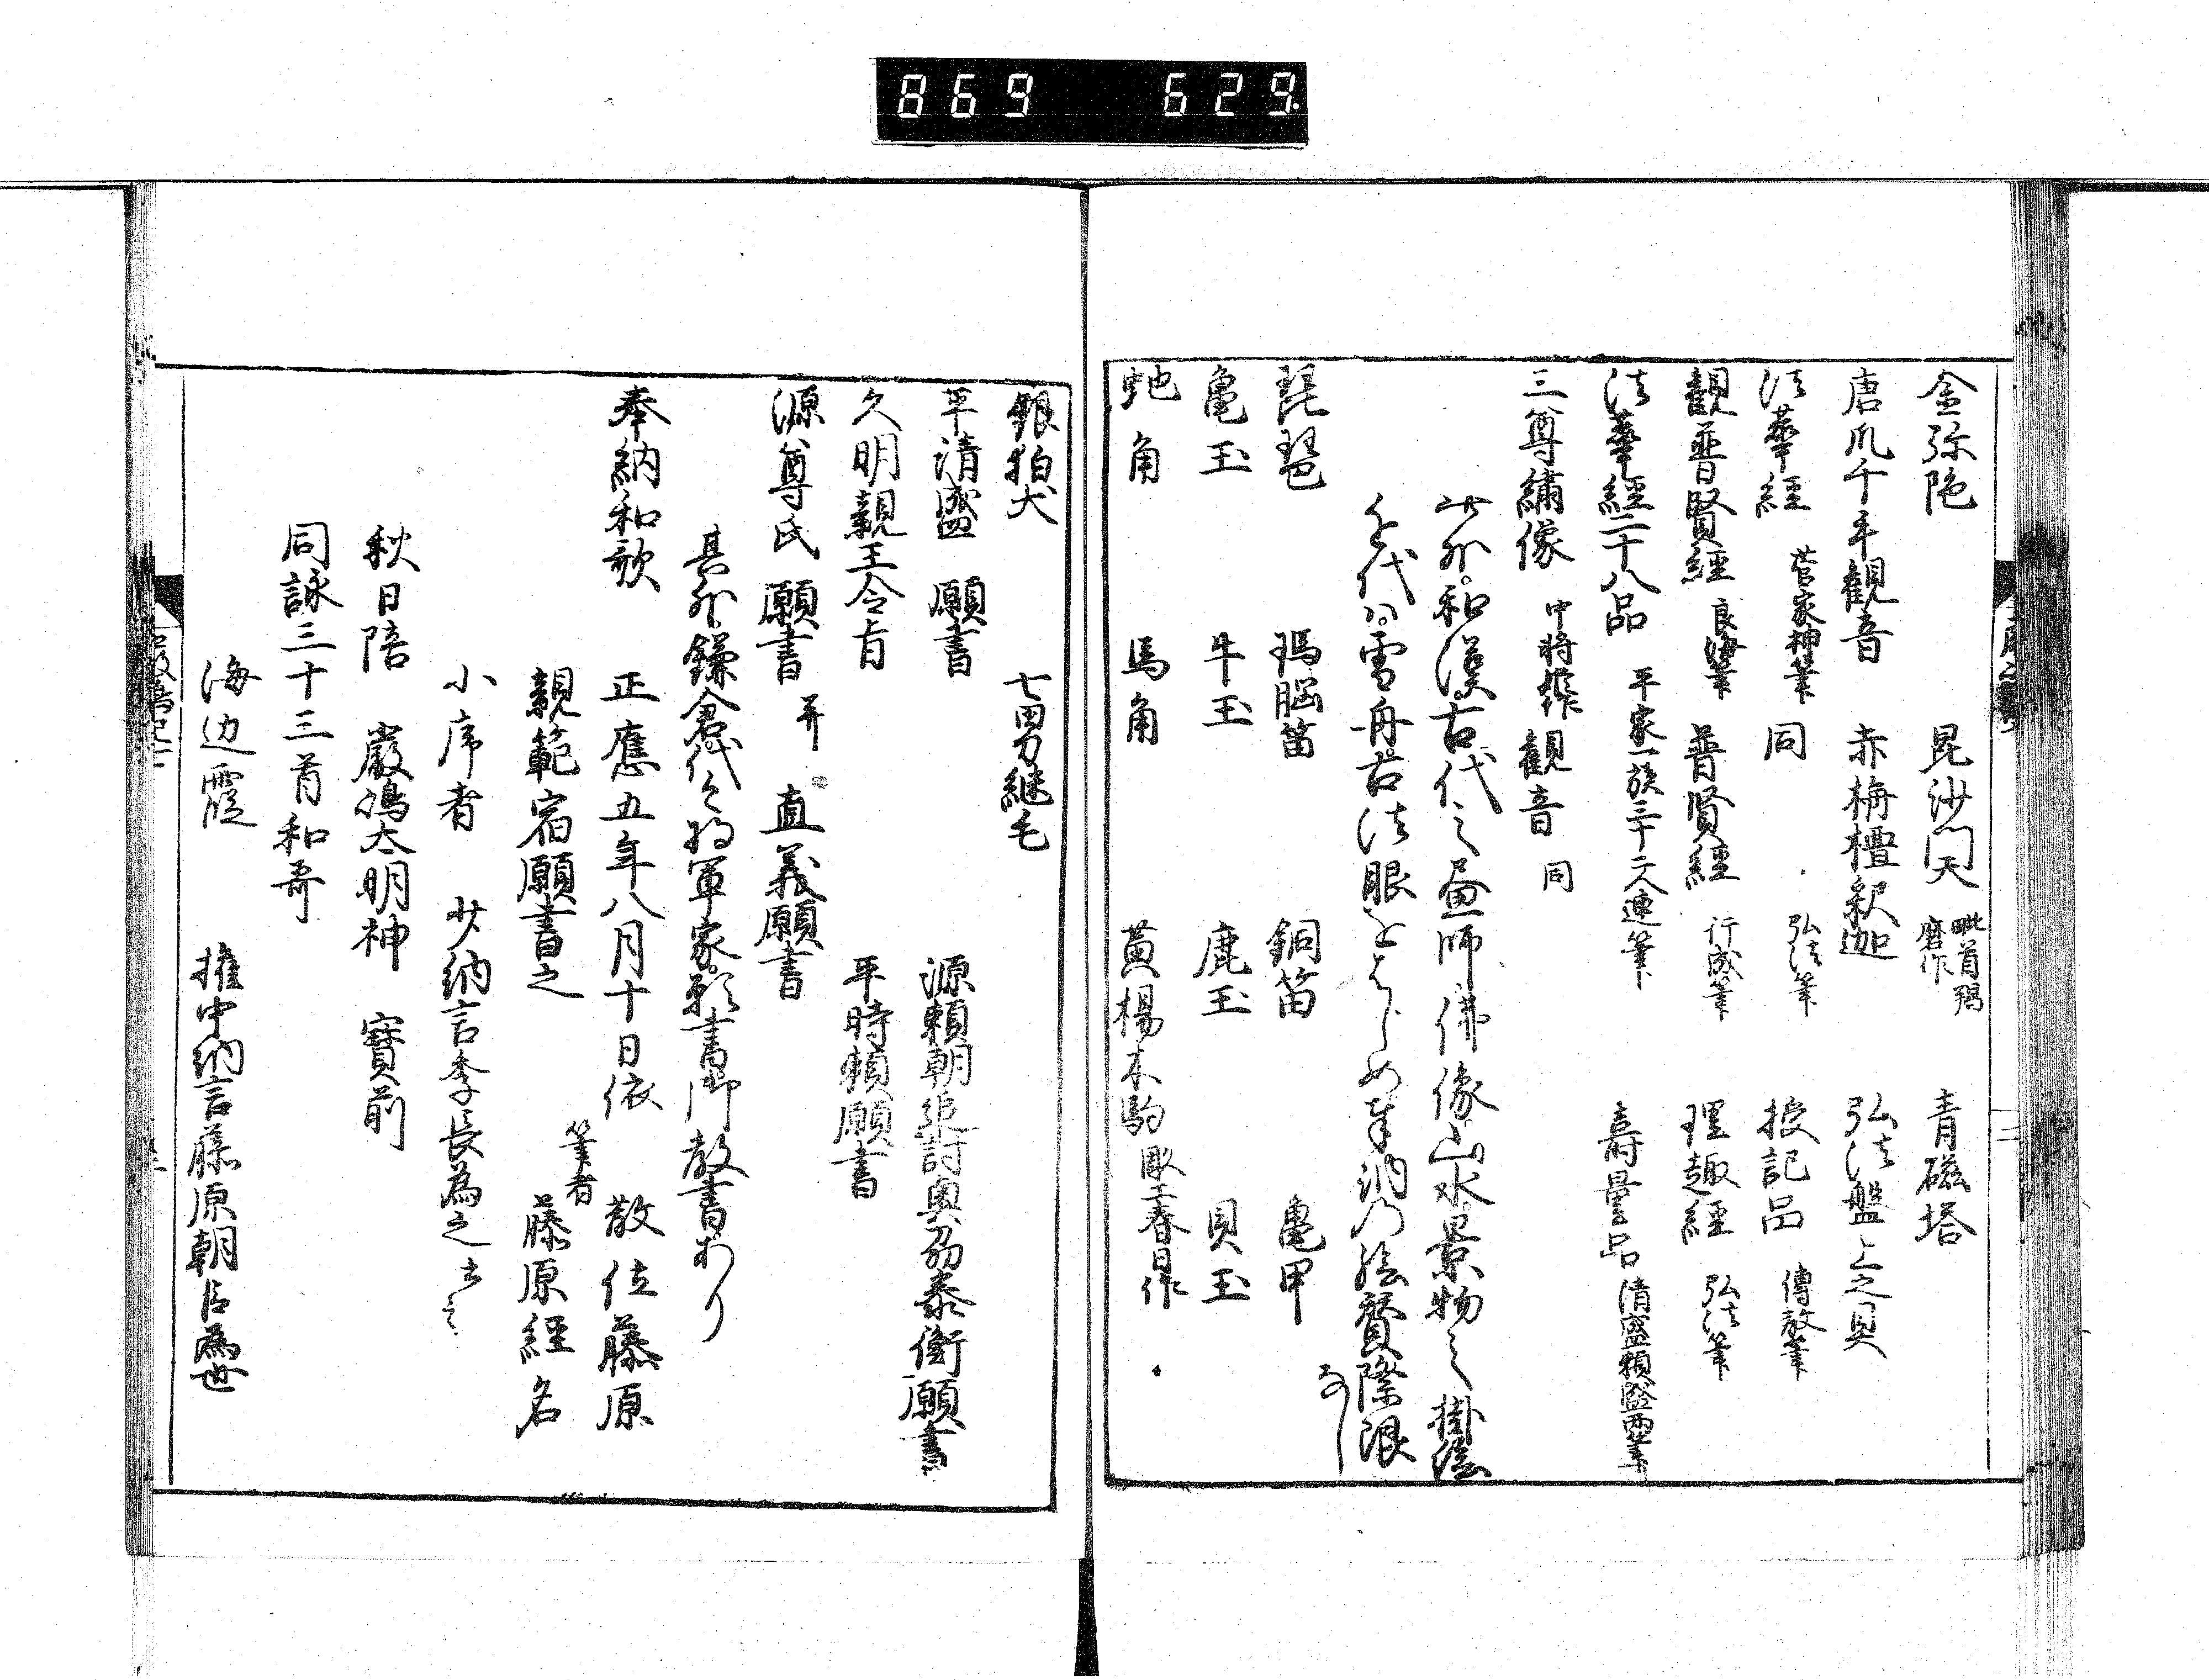 869 629.
金弥陀 毘沙門天 毗首羯磨作 青磁塔
唐爪千手観音 赤栴檀釈迦 弘法盤上之具
法華経 菅家神筆 同 弘法筆 授記品 傳教筆
観普賢経 良海筆 普賢経 行成筆 理趣経 弘法筆
法華経二十八品 平家一族三十二人連筆 壽量品 清盛頼盛両筆
三尊繍像 中将姫作 観音 同
此外和漢古代之畫師佛像山水景物之掛絵
近代ハ雪舟古法眼をはしめ奉納乃絵賛際限
なし
琵琶 瑪脳笛 銅笛 亀甲
亀玉 牛玉 鹿玉 貝玉
虵角 馬角 黄楊木駒 彫工春日作
銀狛犬 七男継毛
平清盛 願書 源頼朝追討奥刕泰衡願書
久明親王令旨 平時頼願書
源尊氏 願書 并 直義願書
其外鎌倉代々将軍家願書御教書あり
奉納和歌 正應五年八月十日依 散位藤原
親範宿願書之 筆者 藤原経名
小序者 少納言季長為之云々
秋日陪 厳嶋太明神 寶前
同詠三十三首和哥
海边霞 權中納言藤原朝臣為世